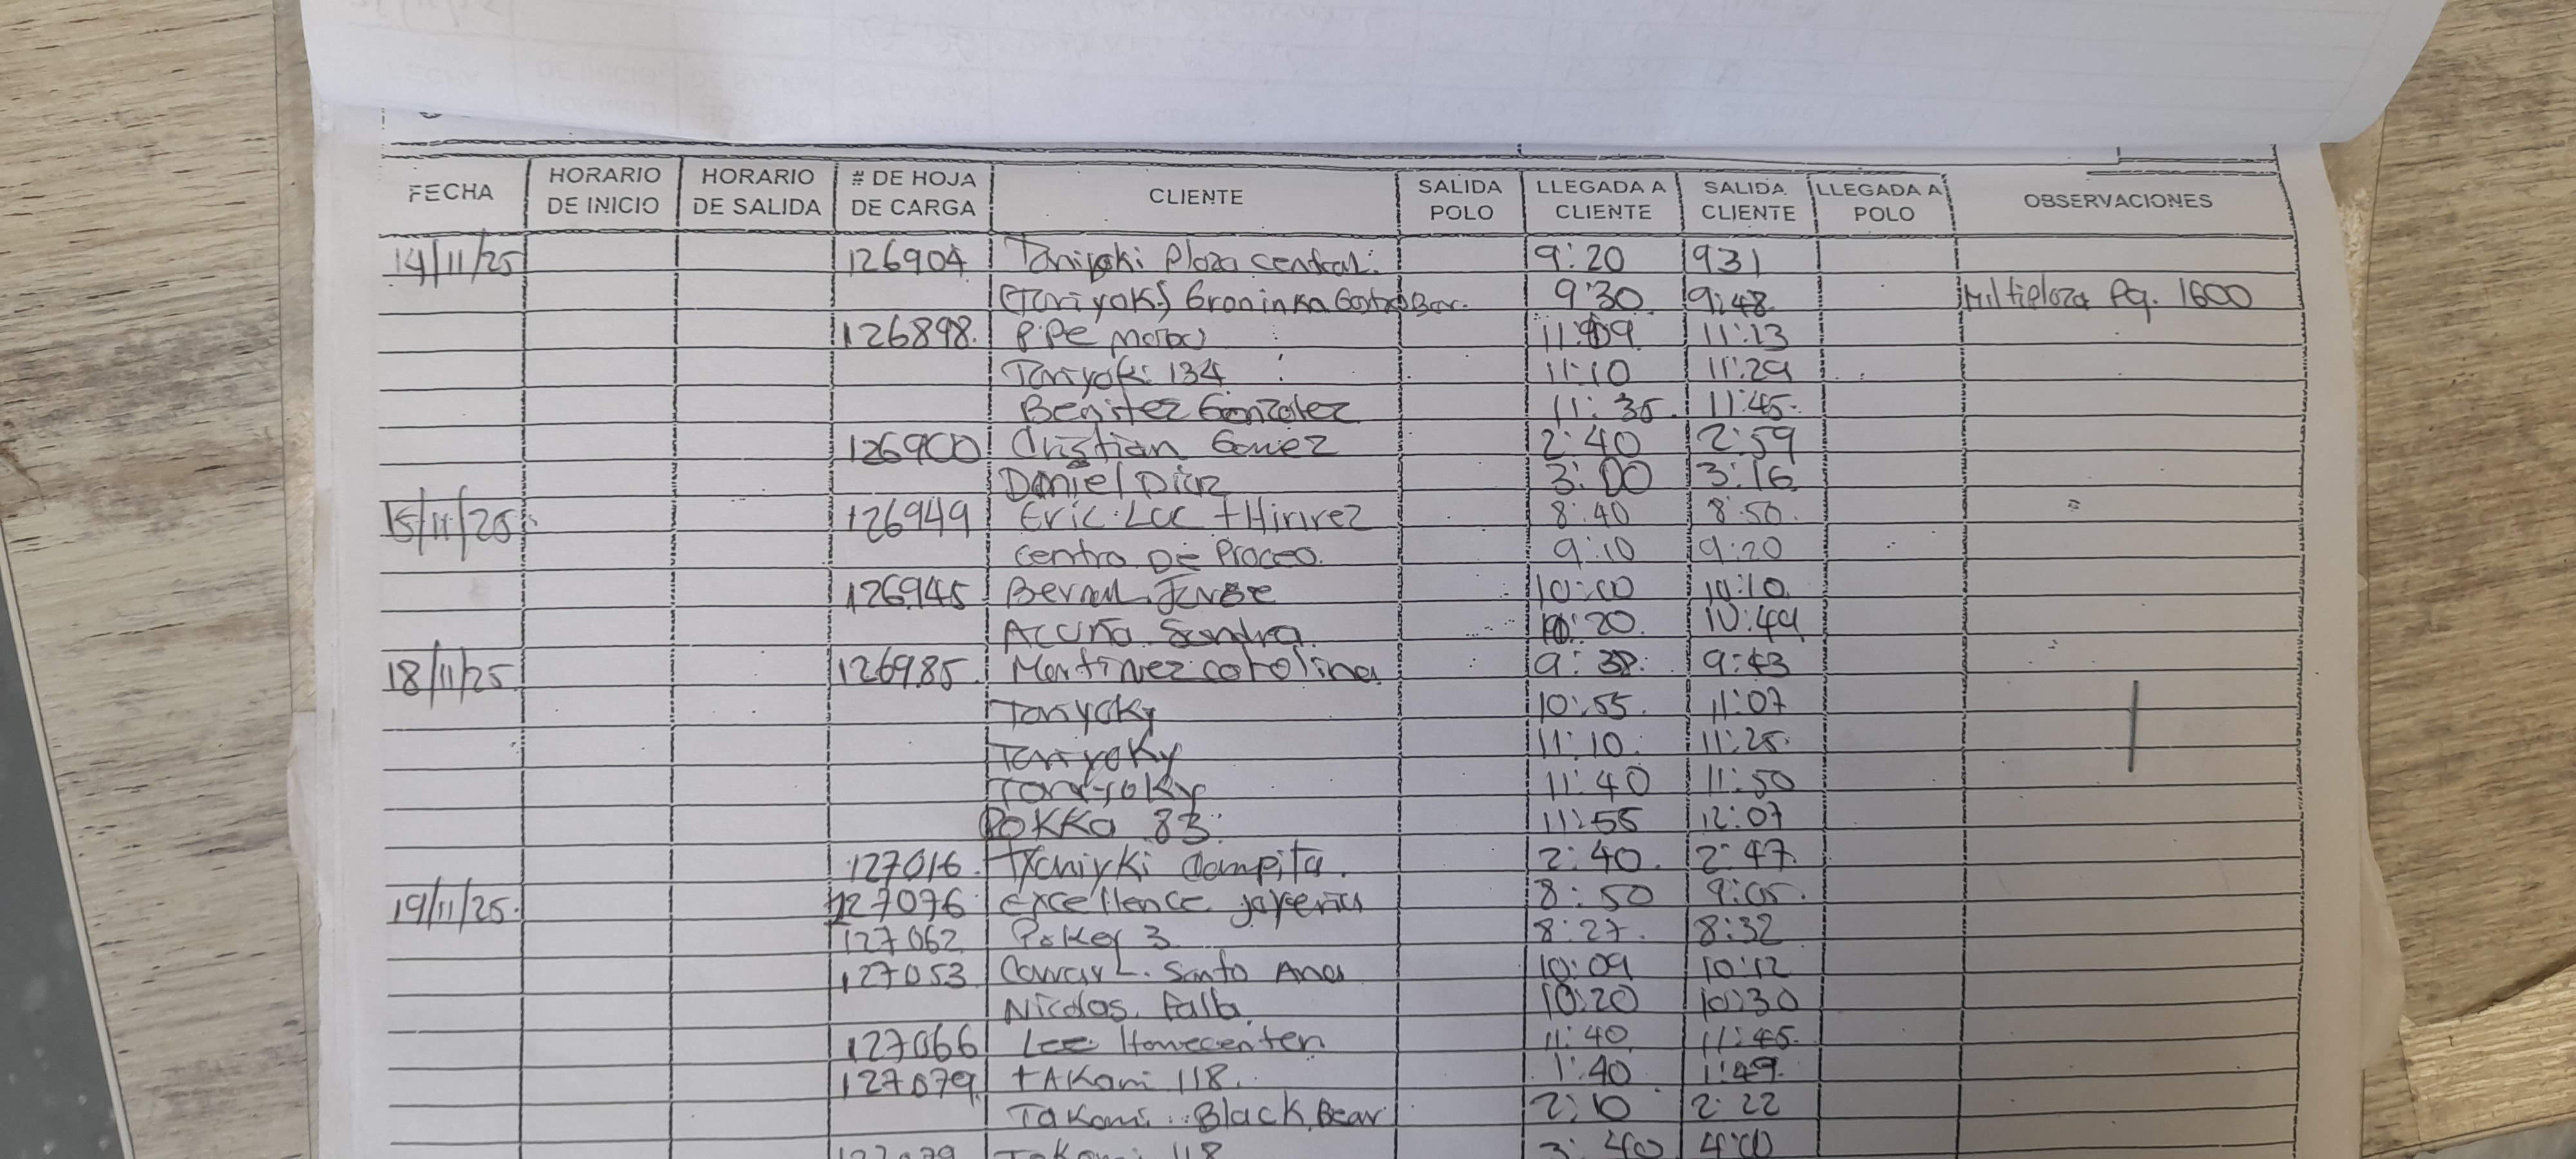 FECHA HORARIO DE INICIO HORARIO DE SALIDA # DE HOJA DE CARGA CLIENTE SALIDA POLO LLEGADA A CLIENTE SALIDA CLIENTE LLEGADA A POLO OBSERVACIONES
14/11/25 126904 Taniyoki Plaza central. 9:20 931
(Tariyoki) Groninka GastroBar. 9:30 9:48 Multiplaza Pq. 1600
126898. PPE 11:09 11:13
Tariyoki 134 11:10 11:29
Benitez Gonzalez 11:35. 11:45.
126900 Cristian Gomez 2:40 2:59
Daniel Diaz 3:00 3:16
15/11/25 126949 Eric. Luc 8:40 8:50.
centro De Proceo. 9:10 9:20
126945 Bernal. 10:00 10:10
Acuña Sandra 10:20 10:49
18/11/25. 126985. Martinez carolina 9:38 9:43
Tariyoky 10:55. 11:07
Tariyoky 11:10 11:25.
Tariyoky 11:40 11:50
POKKa 83. 11:55 12:07
127016. Campita. 2:40. 2:47
19/11/25. 127076 excellence 8:50 9:05.
127062 Poker 3 8:27. 8:32
127053 L. Santo Ana 10:09 10:12
Nicolas. Falla 10:20 10:30
127066 Lee Homecenter 11:40 11:45.
127079 tAKami 118. 1:40 1:49
Takami. Black Bear 2:10 2:22
127079 Takami 118 3:40 4:00